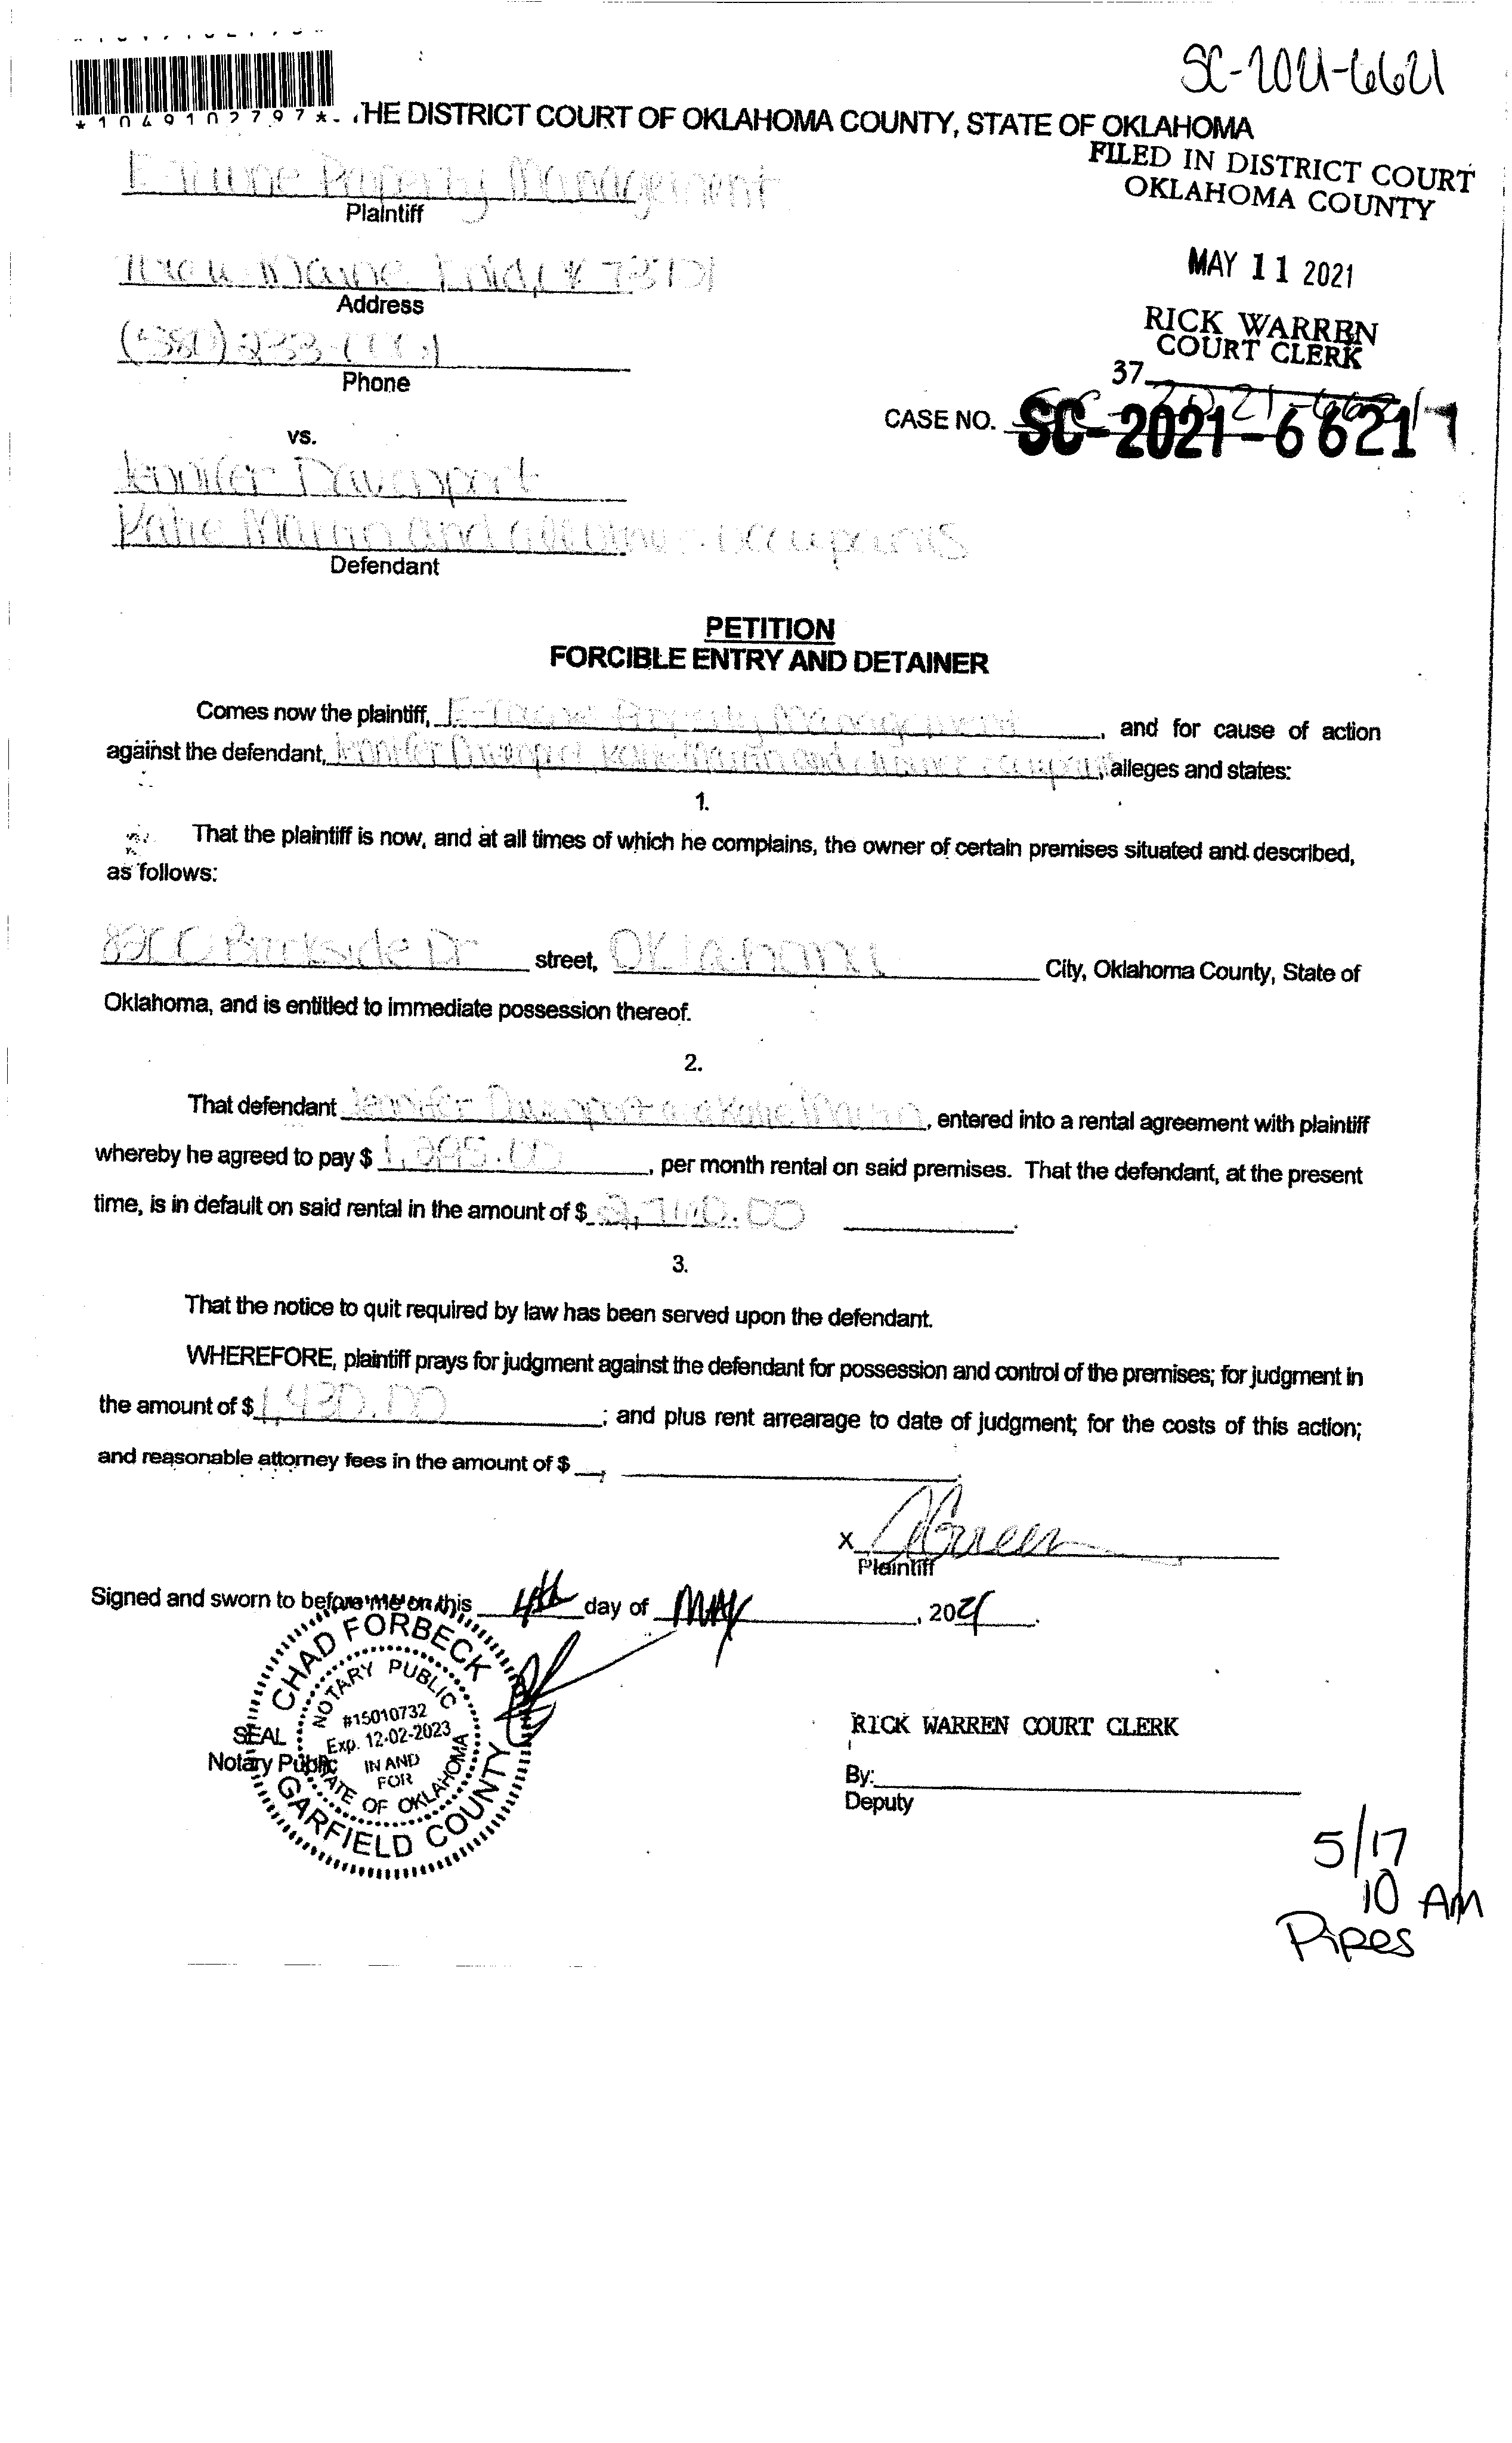 SC-2021-6621
*1049102797* HE DISTRICT COURT OF OKLAHOMA COUNTY, STATE OF OKLAHOMA
FILED IN DISTRICT COURT
OKLAHOMA COUNTY
Property Management
Plaintiff
MAY 11 2021
Enid,
Address
RICK WARREN
COURT CLERK
(580) 233-
Phone
37
CASE NO. SC-2021-6621
vs.
Jennifer Davenport
Katie and all other occupants
Defendant
PETITION
FORCIBLE ENTRY AND DETAINER
Comes now the plaintiff, Property Management, and for cause of action
against the defendant, Jennifer Davenport, Katie and all other occupants, alleges and states:
1.
That the plaintiff is now, and at all times of which he complains, the owner of certain premises situated and described,
as follows:
Dr street, Oklahoma City, Oklahoma County, State of
Oklahoma, and is entitled to immediate possession thereof.
2.
That defendant Jennifer Davenport and Katie, entered into a rental agreement with plaintiff
whereby he agreed to pay $, per month rental on said premises. That the defendant, at the present
time, is in default on said rental in the amount of $.
3.
That the notice to quit required by law has been served upon the defendant.
WHEREFORE, plaintiff prays for judgment against the defendant for possession and control of the premises; for judgment in
the amount of $; and plus rent arrearage to date of judgment; for the costs of this action;
and reasonable attorney fees in the amount of $
X
Plaintiff
Signed and sworn to before me on this 4th day of MAY, 2021.
CHAD FORBECK
NOTARY PUBLIC
#15010732
Exp. 12-02-2023
IN AND
FOR
STATE OF OKLAHOMA
GARFIELD COUNTY
SEAL
Notary Public
RICK WARREN COURT CLERK
By:
Deputy
5/17
10 AM
Pipes